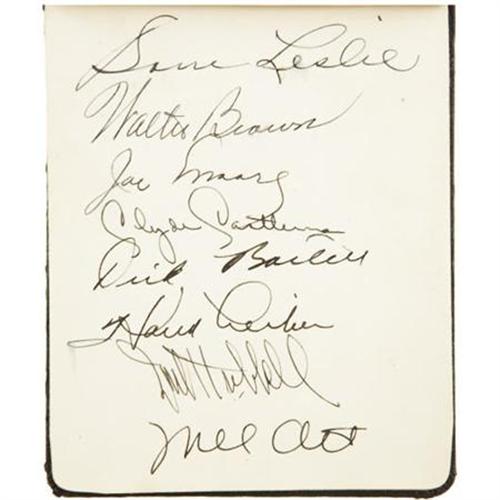 Sam Leslie
Walter Brown
Joe Moore
Clyde Castleman
Dick Bartell
Hank Leiber
Carl Hubbell
Mel Ott